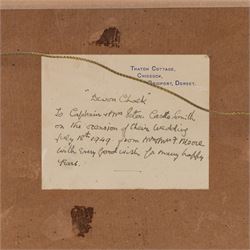 THATCH COTTAGE,
CHIDEOCK,
BRIDPORT, DORSET.
"Devon Chack"
To Captain & Mrs Peter Castle Smith
on the occasion of their wedding
July 16th 1949 from Mr & Mrs F Moore
with every good wish for many happy
years.